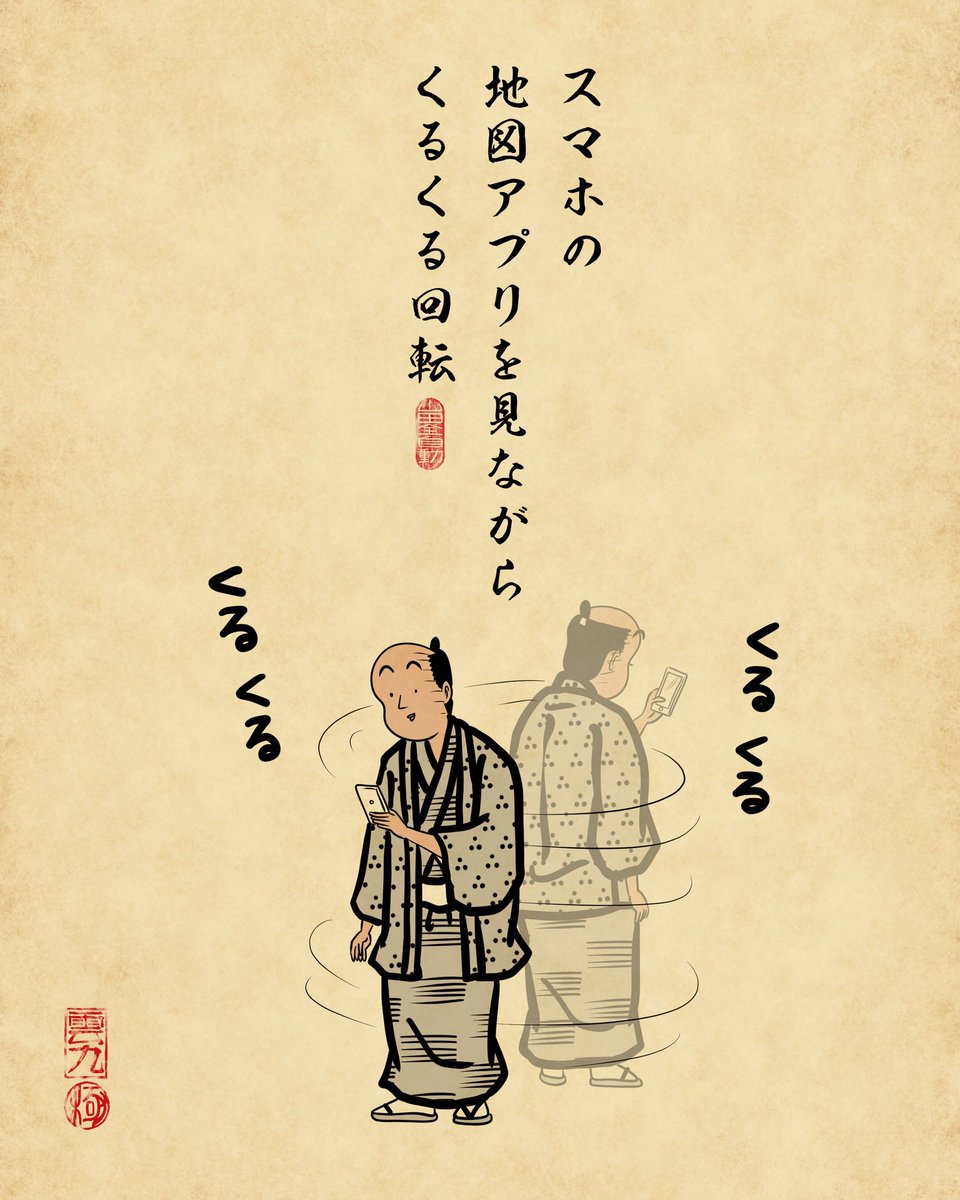 スマホの
地図アプリを見ながら
くるくる回転
くるくる
くるくる